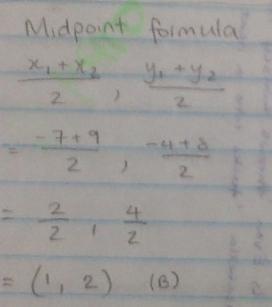 Midpoint formula
x₁ + x₂ / 2 , y₁ + y₂ / 2
= -7 + 9 / 2 , -4 + 8 / 2
= 2 / 2 , 4 / 2
= (1, 2) (B)